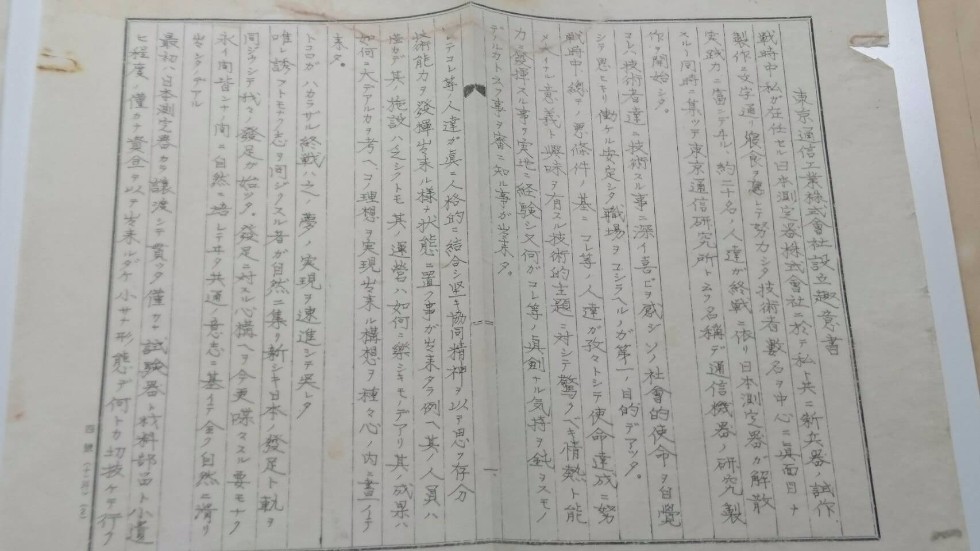 東京通信工業株式會社設立趣意書
戦時中私が在任セル日本測定器株式會社ニ於テ私ト共ニ新兵器ノ試作
製作ニ文字通リ寝食ヲ忘レテ努力シタ技術者數名ヲ中心ニ真面目ナ
実践力ニ富ンデヰル約二十名ノ人達が終戦ニ依リ日本測定器が解散
スルト同時ニ集ッテ東京通信研究所ト云フ名称デ通信機器ノ研究製
作ヲ開始シタ。
コレハ技術者達ニ技術スル事ニ深イ喜ビヲ感ジソノ社會的使命ヲ自覺
シテ思ヒキリ働ケル安定シタ職場ヲコシラヘルノガ第一ノ目的デアッタ。
戦時中総ユル悪條件ノ基ニコレ等ノ人達が孜々トシテ使命達成ニ努
メ大イナル意義ト興味ヲ有スル技術的主題ニ対シテ驚クベキ情熱ト能
力ヲ發揮スル事ヲ実地ニ経験シ又何がコレ等ノ真剣ナル気持ヲ鈍ラスモノ
デアルカト云フ事ヲ審ニ知ル事が出来タ。
レデコレ等ノ人達が真ニ人格的ニ結合シ坚キ協同精神ヲ以テ思フ存分
技術能力ヲ發揮出来ル様ナ状態ニ置ク事が出来タラ例ヘ其ノ人員ハ
僅カデ其ノ施設ハ乏シクトモ其ノ運營ハ如何ニ樂シキモノデアリ其ノ成果ハ
如何ニ大デアルカヲ考ヘコノ理想ヲ実現出来ル構想ヲ種々心ノ内ニ畫イテ
来タ。
トコロガハカラザル終戦ハ之ノ夢ノ実現ヲ速進シテ呉レタ
唯レ誘フトモナク志ヲ同ジクスル者が自然ニ集リ新シキ日本ノ發足ト軌ヲ
同ジクシテ我々ノ發足が始ッタ。發足ニ対スル心構ヘヲ今更喋々スル要モナク
永イ間皆ンナノ間ニ自然ニ培レテヰタ共通ノ意志ニ基イテ全ク自然ニ滑リ
出シタノデアル
最初ハ日本測定器カラ譲渡シテ貰ッタ僅カナ試驗器ト材料部品ト小遣
ヒ程度ノ僅カナ資金ヲ以テ出来ルダケ小サナ形態デ何トカ切抜ケテ行ク